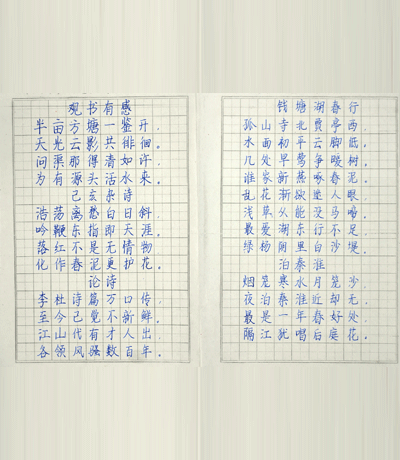 观书有感
半亩方塘一鉴开，
天光云影共徘徊。
问渠那得清如许，
为有源头活水来。
己亥杂诗
浩荡离愁白日斜，
吟鞭东指即天涯。
落红不是无情物，
化作春泥更护花。
论诗
李杜诗篇万口传，
至今已觉不新鲜。
江山代有才人出，
各领风骚数百年。
钱塘湖春行
孤山寺北贾亭西，
水面初平云脚低。
几处早莺争暖树，
谁家新燕啄春泥。
乱花渐欲迷人眼，
浅草从能没马啼。
最爱湖东行不足，
绿杨阴里白沙堤。
泊秦淮
烟笼寒水月笼沙，
夜泊秦淮近却无。
最是一年春好处，
隔江犹唱后庭花。